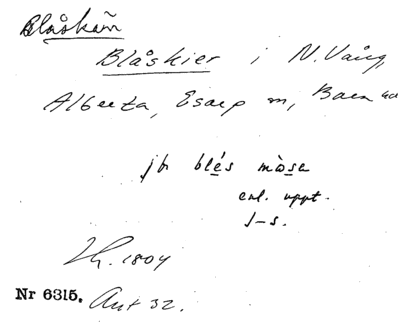 Blåskän
Blåskier i N. Vång,
Alberta, Esarp m,
jfr blés mòsa
enl. uppt.
J-s.
Th. 1804
Nr 6315. Ant 32.